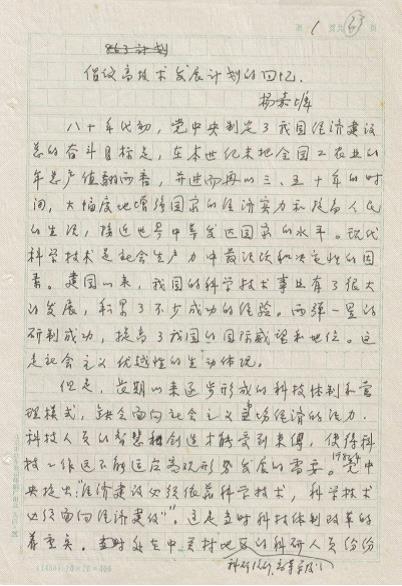 第 1 页共 63 页
863计划
倡议高技术发展计划的回忆.
杨嘉墀
八十年代初，党中央制定了我国经济建设
总的奋斗目标是，在本世纪末把全国工农业的
年总产值翻两番，并进而再以三、五十年的时
间，大幅度地增强国家的经济实力和提高人民
的生活，接近世界中等发达国家的水平。现代
科学技术是社会生产力中最活泼和决定性的因
素。建国以来，我国的科学技术事业有了很大
的发展，积累了不少成功的经验。两弹一星的
研制成功，提高了我国的国际威望和地位。这
是社会主义优越性的生动体现。
但是，长期以来逐步形成的科技体制和管
理模式，缺乏面向社会主义市场经济的活力.
科技人员的智慧和创造才能受到束缚，使得科
技工作远不能适应高速形势发展的需要。1985年党中
央提出："经济建设必须依靠科学技术，科学技术
必须面向经济建设"，这是当时科技体制改革的
着重点。当时处在中关村地区的科研人员纷纷
科研院所、高等学校
(1486) 20×20=400